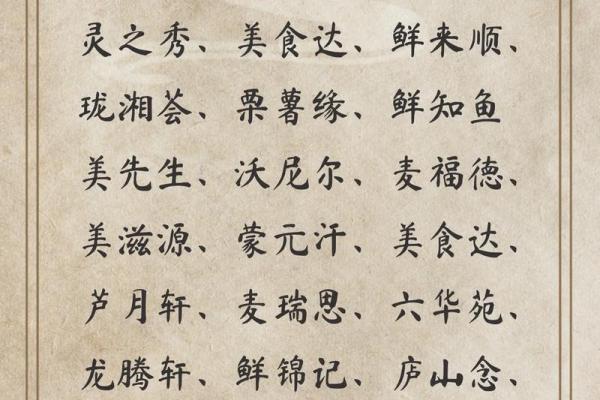 灵之秀、美食达、鲜来顺、
珑湘荟、栗薯缘、鲜知鱼
美先生、沃尼尔、麦福德、
美滋源、蒙元汗、美食达、
芦月轩、麦瑞思、六华苑、
龙腾轩、鲜锦记、庐山念、